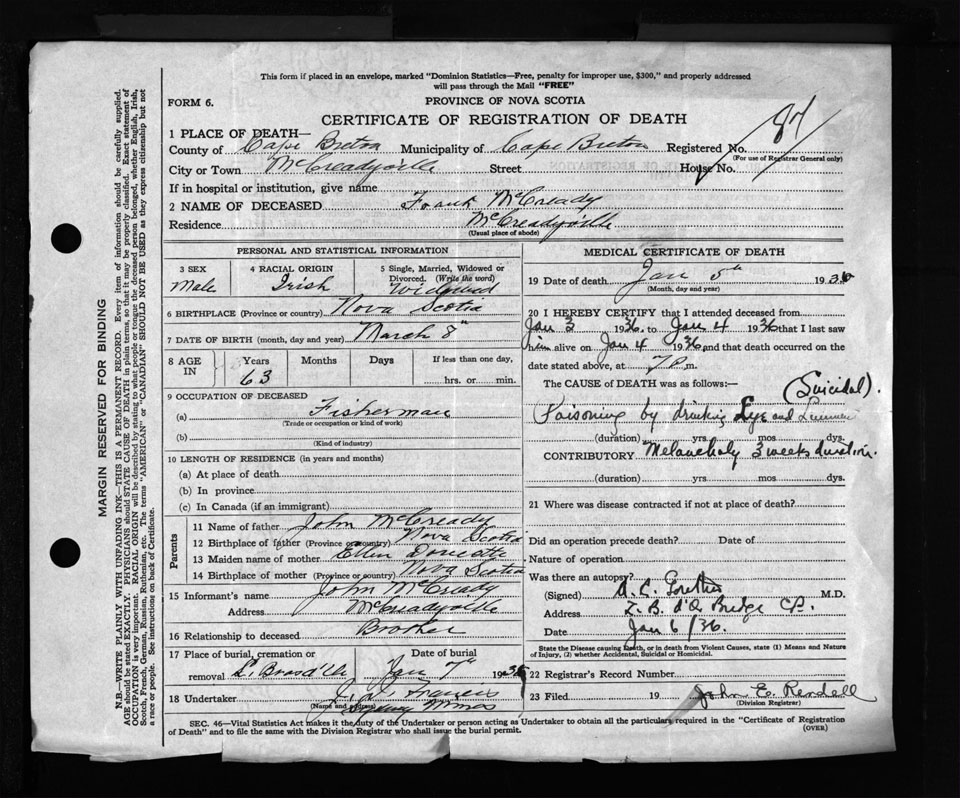 This form if placed in an envelope, marked "Dominion Statistics—Free, penalty for improper use, $300," and properly addressed
will pass through the Mail "FREE"
FORM 6.
PROVINCE OF NOVA SCOTIA
CERTIFICATE OF REGISTRATION OF DEATH
87
1 PLACE OF DEATH—
County of Cape Breton Municipality of Cape Breton Registered No.
(For use of Registrar General only)
City or Town McCreadyville Street House No.
If in hospital or institution, give name
2 NAME OF DECEASED Frank McCready
Residence McCreadyville
(Usual place of abode)
PERSONAL AND STATISTICAL INFORMATION
3 SEX 4 RACIAL ORIGIN 5 Single, Married, Widowed or
Divorced. (Write the word)
Male Irish Widowed
6 BIRTHPLACE (Province or country) Nova Scotia
7 DATE OF BIRTH (month, day and year) March 8th
8 AGE IN Years Months Days If less than one day,
63 hrs. or min.
9 OCCUPATION OF DECEASED
(a) Fisherman
(Trade or occupation or kind of work)
(b)
(Kind of industry)
10 LENGTH OF RESIDENCE (in years and months)
(a) At place of death
(b) In province
(c) In Canada (if an immigrant)
Parents
11 Name of father John McCready
12 Birthplace of father (Province or country) Nova Scotia
13 Maiden name of mother Ellen
14 Birthplace of mother (Province or country) Nova Scotia
15 Informant's name John McCready
Address McCreadyville
16 Relationship to deceased Brother
17 Place of burial, cremation or
removal L. Brasd'Or Jan 7th 19
18 Undertaker J. J. Francis
(Name and address) Sydney Mines
MEDICAL CERTIFICATE OF DEATH
19 Date of death Jan 5th 1936
(Month, day and year)
20 I HEREBY CERTIFY that I attended deceased from
Jan 3 1936 to Jan 4 1936 that I last saw
him alive on Jan 4 1936 and that death occurred on the
date stated above, at 7 P. m.
The CAUSE of DEATH was as follows:— (Suicidal).
Poisoning by drinking Lye and
(duration) yrs. mos dys.
CONTRIBUTORY Melancholy 3 weeks duration.
(duration) yrs mos dys.
21 Where was disease contracted if not at place of death?
Did an operation precede death? Date of
Nature of operation
Was there an autopsy?
(Signed) A. C. M.D.
Address Bridge C.B.
Date Jan 6/36.
State the Disease causing Death, or in death from Violent Causes, state (1) Means and
Nature of Injury, (2) whether Accidental, Suicidal or Homicidal.
22 Registrar's Record Number
23 Filed 19 John E. Rendell
(Division Registrar)
SEC. 46—Vital Statistics Act makes it the duty of the Undertaker or person acting as Undertaker to obtain all the particulars required in the "Certificate of Registration
of Death" and to file the same with the Division Registrar who shall issue the burial permit.
(OVER)
MARGIN RESERVED FOR BINDING
N.B.—WRITE PLAINLY WITH UNFADING INK—THIS IS A PERMANENT RECORD. Every item of information should be carefully supplied.
AGE should be stated EXACTLY. PHYSICIANS should STATE CAUSE OF DEATH in plain terms, so that it may be properly classified. Exact statement of
OCCUPATION is very important. RACIAL ORIGIN will be described by stating to what people or tongue the deceased person belonged, whether English, Irish,
Scotch, French, German, Russian, Ruthenian, etc. The terms "AMERICAN" or "CANADIAN" SHOULD NOT BE USED as they express citizenship but not
a race or people. See instructions on back of Certificate.